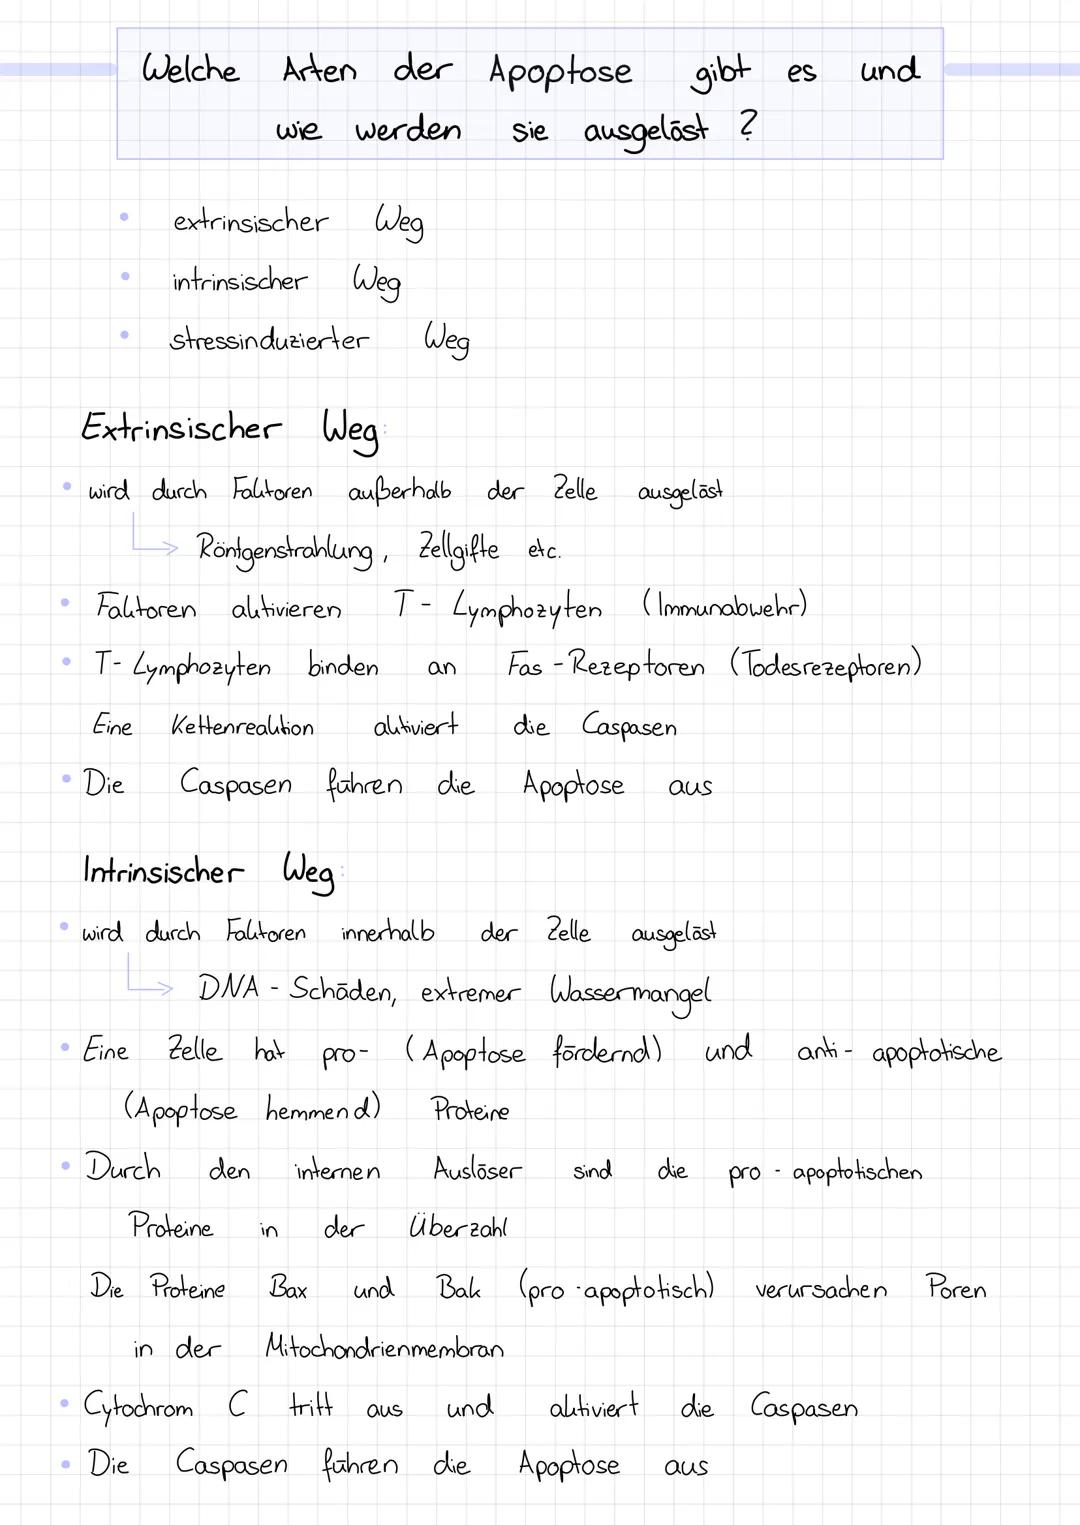 Welche Arten der Apoptose gibt es und
wie werden sie ausgelöst ?
• extrinsischer Weg
• intrinsischer Weg
• stressinduzierter Weg
Extrinsischer Weg:
• wird durch Faktoren außerhalb der Zelle ausgelöst
Röntgenstrahlung, Zellgifte etc.
• Faktoren aktivieren T- Lymphozyten (Immunabwehr)
• T- Lymphozyten binden an Fas - Rezeptoren (Todesrezeptoren)
Eine Kettenreaktion aktiviert die Caspasen
• Die Caspasen führen die Apoptose aus
Intrinsischer Weg:
• wird durch Faktoren innerhalb der Zelle ausgelöst
DNA - Schäden, extremer Wassermangel
• Eine Zelle hat pro- (Apoptose fördernd) und anti- apoptotische
(Apoptose hemmend) Proteine
• Durch den internen Auslöser sind die pro - apoptotischen
Proteine in der Überzahl
Die Proteine Bax und Bak (pro-apoptotisch) verursachen Poren
in der Mitochondrienmembran
• Cytochrom C tritt aus und aktiviert die Caspasen
• Die Caspasen führen die Apoptose aus